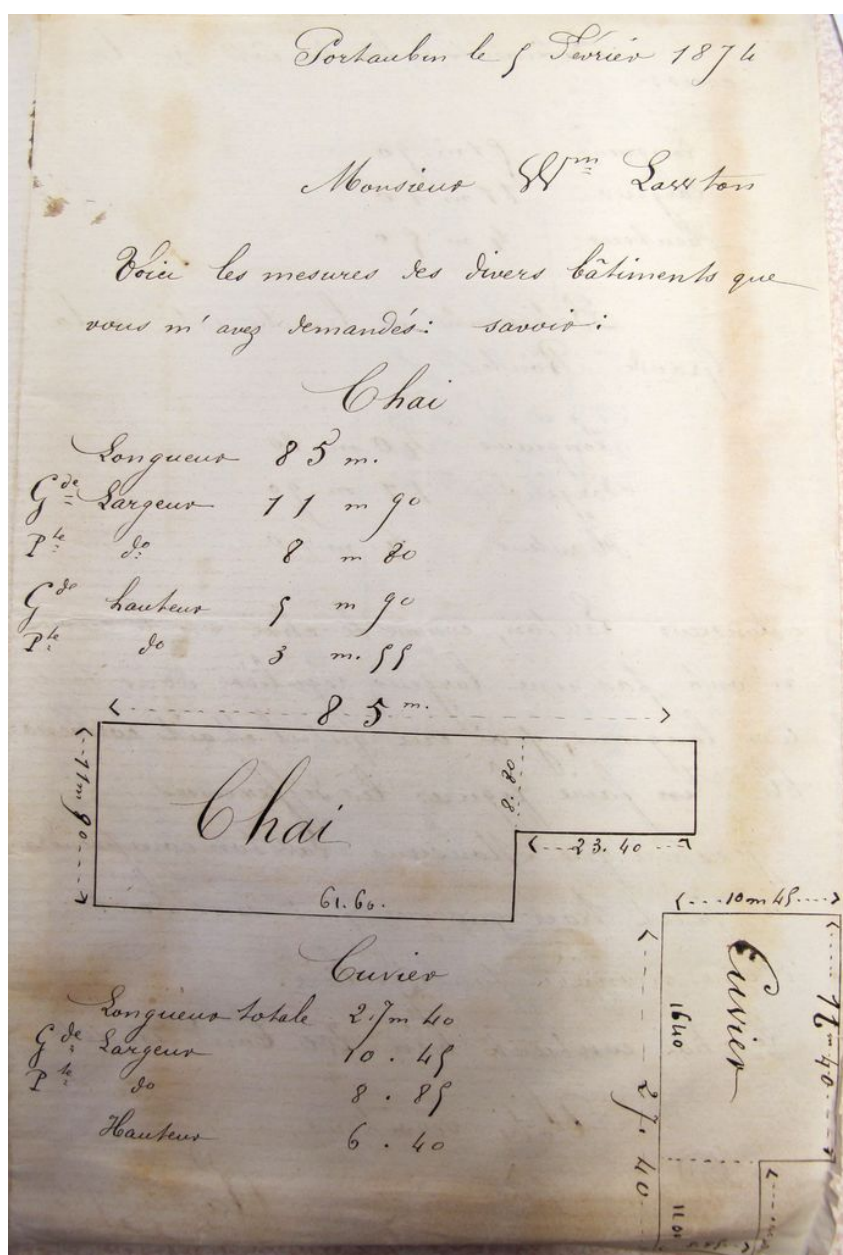 Portaubin le 5 Février 1874
Monsieur Wm Lawton
Voici les mesures des divers bâtiments que
vous m'avez demandés: savoir:
Chai
Longueur 85 m.
Gde Largeur 11 m 90
Pte do 8 m 80
Gde hauteur 5 m 90
Pte do 3 m. 55
85 m.
11 m 90
Chai
8.80
23.40
61.60.
Cuvier
Longueur totale 27m 40
Gde Largeur 10.45
Pte do 8.85
Hauteur 6.40
10 m 45
Cuvier
1640
27.40